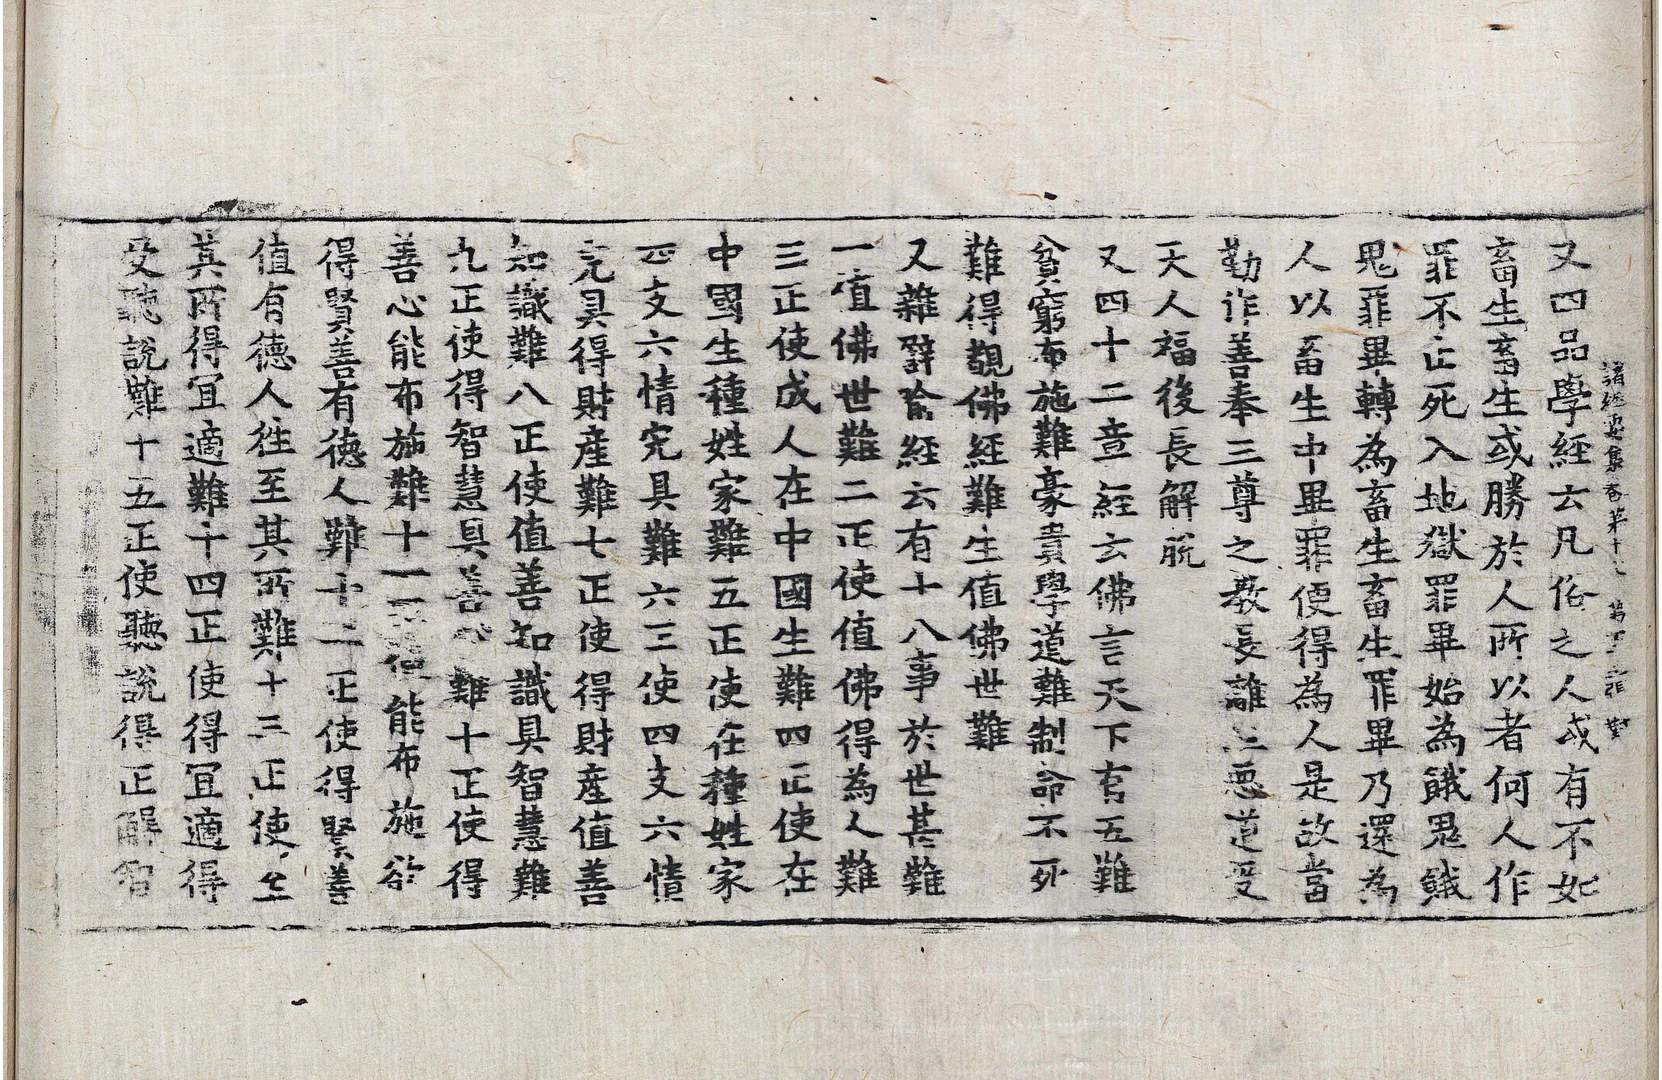 諸經要集卷第十九 第十三 罪 對
又四品學經云凡俗之人或有不如
畜生畜生或勝於人所以者何人作
罪不止死入地獄罪畢始為餓鬼餓
鬼罪畢轉為畜生畜生罪畢乃還為
人以畜生中畢罪便得為人是故當
勤作善奉三尊之教長離三惡道受
天人福後長解脫
又四十二章經云佛言天下有五難
貧窮布施難豪貴學道難制命不死
難得覩佛經難生值佛世難
又雜譬喻經云有十八事於世甚難
一值佛世難二正使值佛得為人難
三正使成人在中國生難四正使在
中國生種姓家難五正使在種姓家
四支六情完具難六正使四支六情
完具得財產難七正使得財產值善
知識難八正使值善知識具智慧難
九正使得智慧具善心難十正使得
善心能布施難十一正使能布施欲
得賢善有德人難十二正使得賢善
值有德人往至其所難十三正使至
其所得宜適難十四正使得宜適得
受聽說難十五正使聽說得正解智